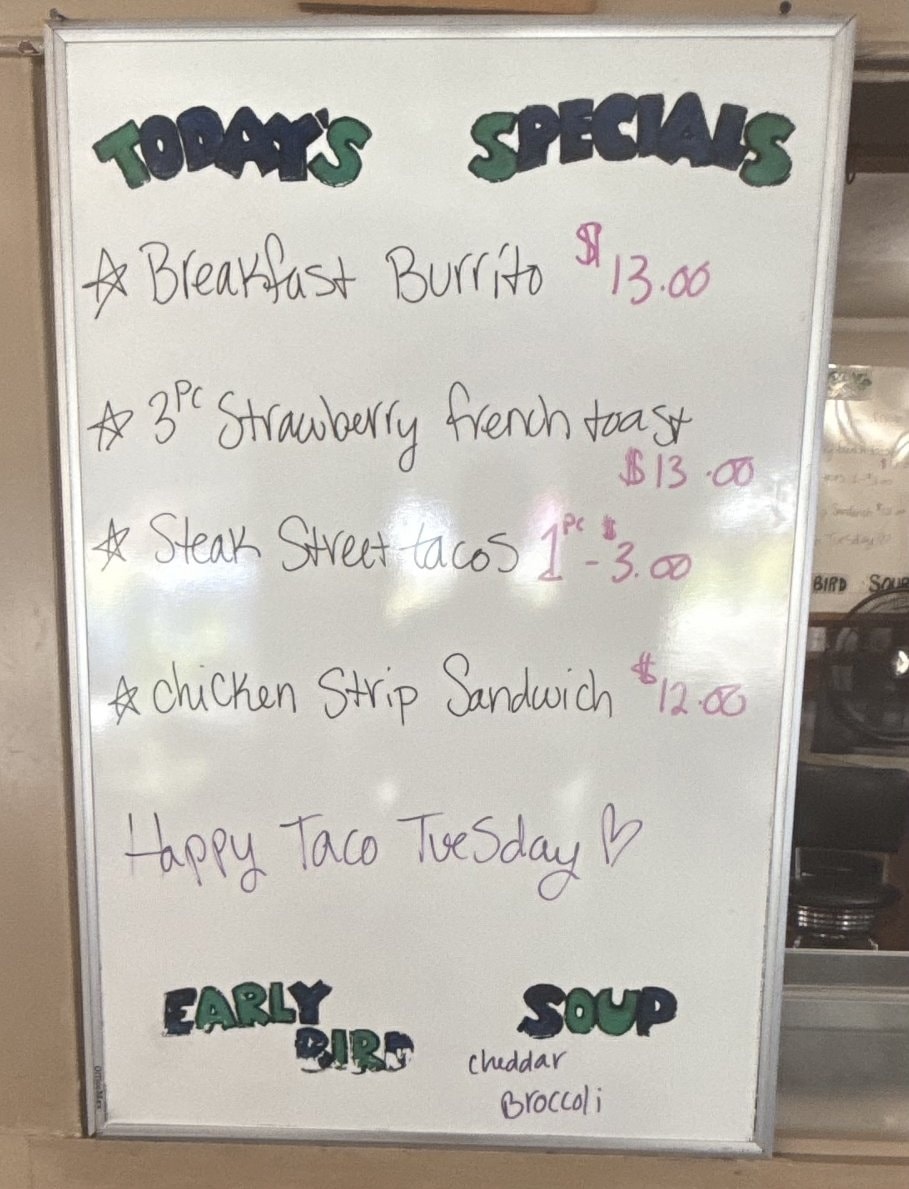 TODAY'S SPECIALS
☆ Breakfast Burrito $13.00
☆ 3pc Strawberry french toast
$13.00
☆ Steak Street tacos 1pc - $3.00
☆ chicken Strip Sandwich $12.00
Happy Taco Tuesday ♡
EARLY BIRD
SOUP
cheddar
Broccoli
OfficeMax
BIRD SOUP